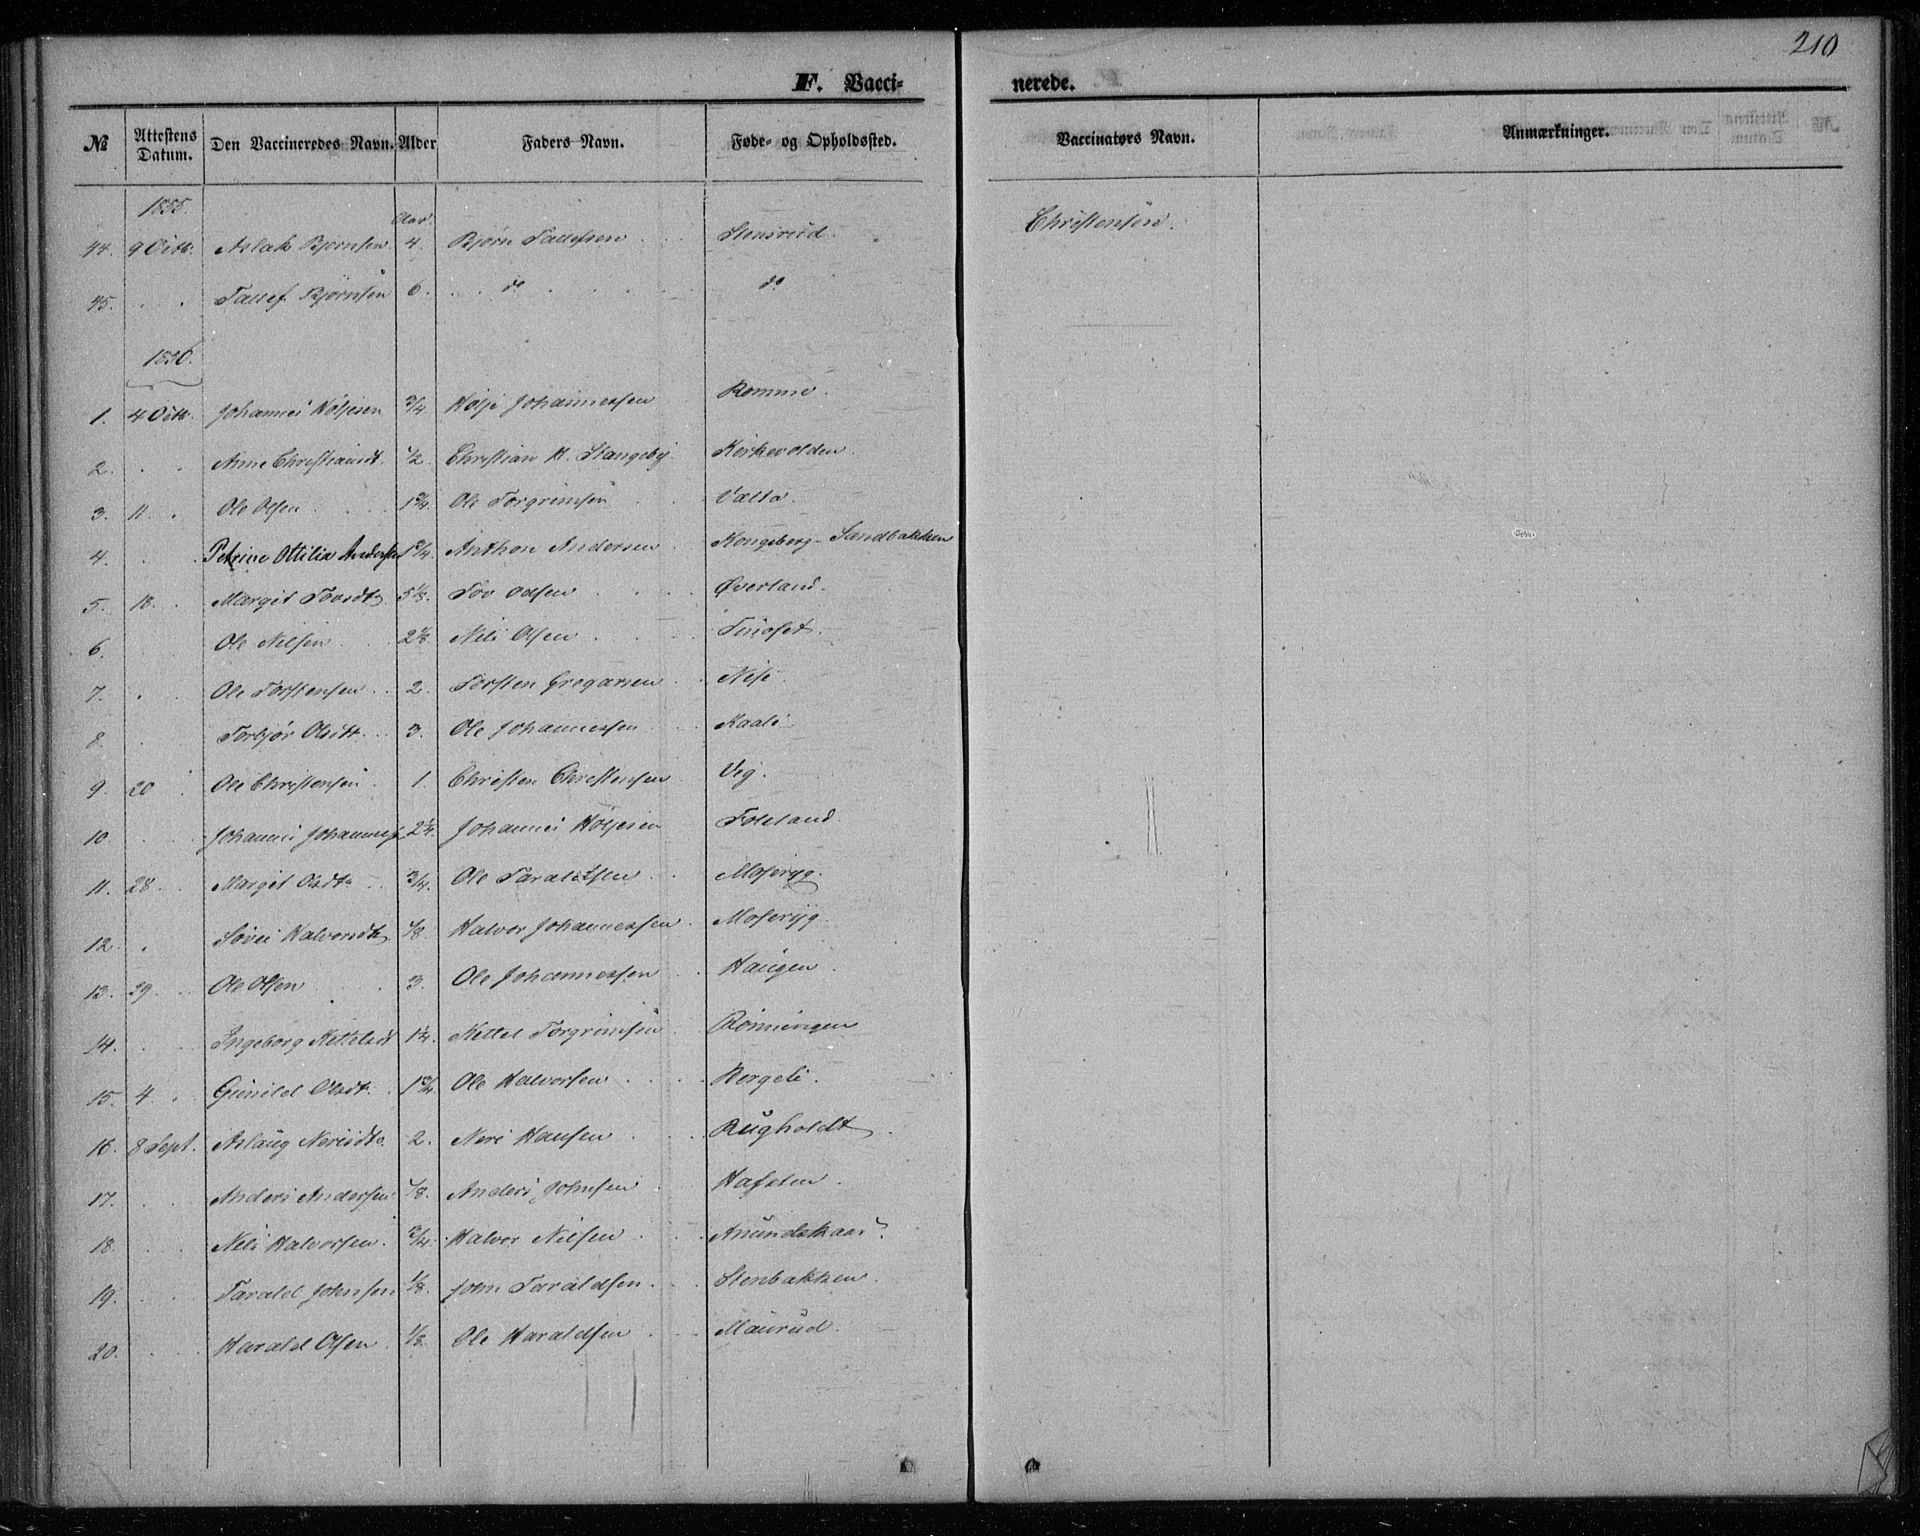 210
F. Vaccinerede.
№ Attestens Datum. Den Vaccineredes Navn. Alder Faders Navn. Føde- og Opholdssted. Vaccinators Navn. Anmærkninger.
1855.
Aar.
44. 9 Octb. Aslak Bjørnsen 4. Bjørn Tallefsen Stensrud. Christensen.
45. Tallef Bjørnsen 6. do do
1856.
1. 4 Octb. Johannes Höljesen 3/4 Hölje Johannessen Romme.
2. Anne Christiansdt. 1/2. Christian H. Stangeby. Kirkevolden.
3. 11. Ole Olsen 1 3/4. Ole Torgrimsen Valta.
4. Petrine Ottilia Andersen 1 3/4. Anthon Andersen Kongsberg - Sandbakken
5. 18. Margit Tovsdt. 5 1/8. Tov Olsen Øverland.
6. Ole Nilsen 2 1/8. Nils Olsen Tinoset.
7. Ole Torstensen 2. Torsten Gregarsen Nese.
8. Torbjør Olsdt. 3. Ole Johannessen Kaale.
9. 20 Ole Christensen 1. Christen Christensen Vig.
10. Johannes Johannesf. 2 1/4. Johannes Höljesen Foleland.
11. 28. Margit Olsdt. 3/4. Ole Taraldsen Moseryg.
12. Søvei Halvorsdt. 1/8. Halvor Johannessen Moseryg.
13. 29. Ole Olsen 3. Ole Johannessen Haugen.
14. Ingeborg Kettelsdt 1 1/4. Kettel Torgrimsen Rönningen
15. 4. Gunild Olsdt. 1 3/4. Ole Halvorsen Borgeli.
16. 8 Sept. Aslaug Nerisdt. 2. Neri Hansen Rugholdt.
17. Anders Andersen 1/8. Anders Johnsen Hafsten.
18. Nils Halvorsen. 3/4. Halvor Nilsen Anundskaas.
19. Tarald Johnsen 1/8. John Taraldsen. Stenbakken.
20. Harald Olsen 1/8. Ole Haraldsen Maurud.